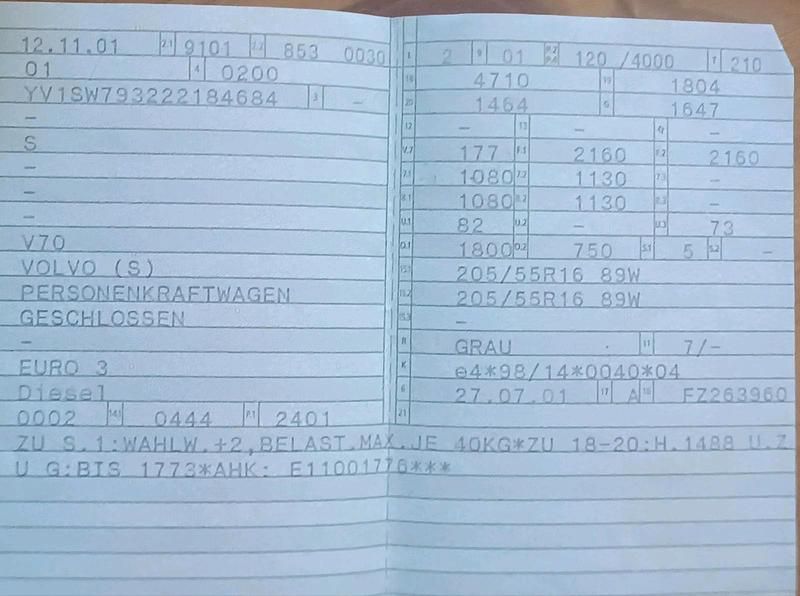 12.11.01 2.1 9101 2.2 853 0030
01 4 0200
YV1SW793222184684 3 –
–
S
–
–
–
V70
VOLVO (S)
PERSONENKRAFTWAGEN
GESCHLOSSEN
–
EURO 3
Diesel
0002 14.1 0444 P.1 2401
L 2 9 01 P.2 P.4 120 /4000 T 210
18 4710 19 1804
20 1464 G 1647
12 – 13 – Q –
V.7 177 F.1 2160 F.2 2160
7.1 1080 7.2 1130 7.3 –
8.1 1080 8.2 1130 8.3 –
U.1 82 U.2 – U.3 73
O.1 1800 O.2 750 S.1 5 S.2 –
15.1 205/55R16 89W
15.2 205/55R16 89W
15.3 –
R GRAU 11 7/–
K e4*98/14*0040*04
6 27.07.01 17 A 16 FZ263960
21
ZU S.1:WAHLW.+2,BELAST.MAX.JE 40KG*ZU 18-20:H.1488 U.Z
U G:BIS 1773*AHK: E11001776***